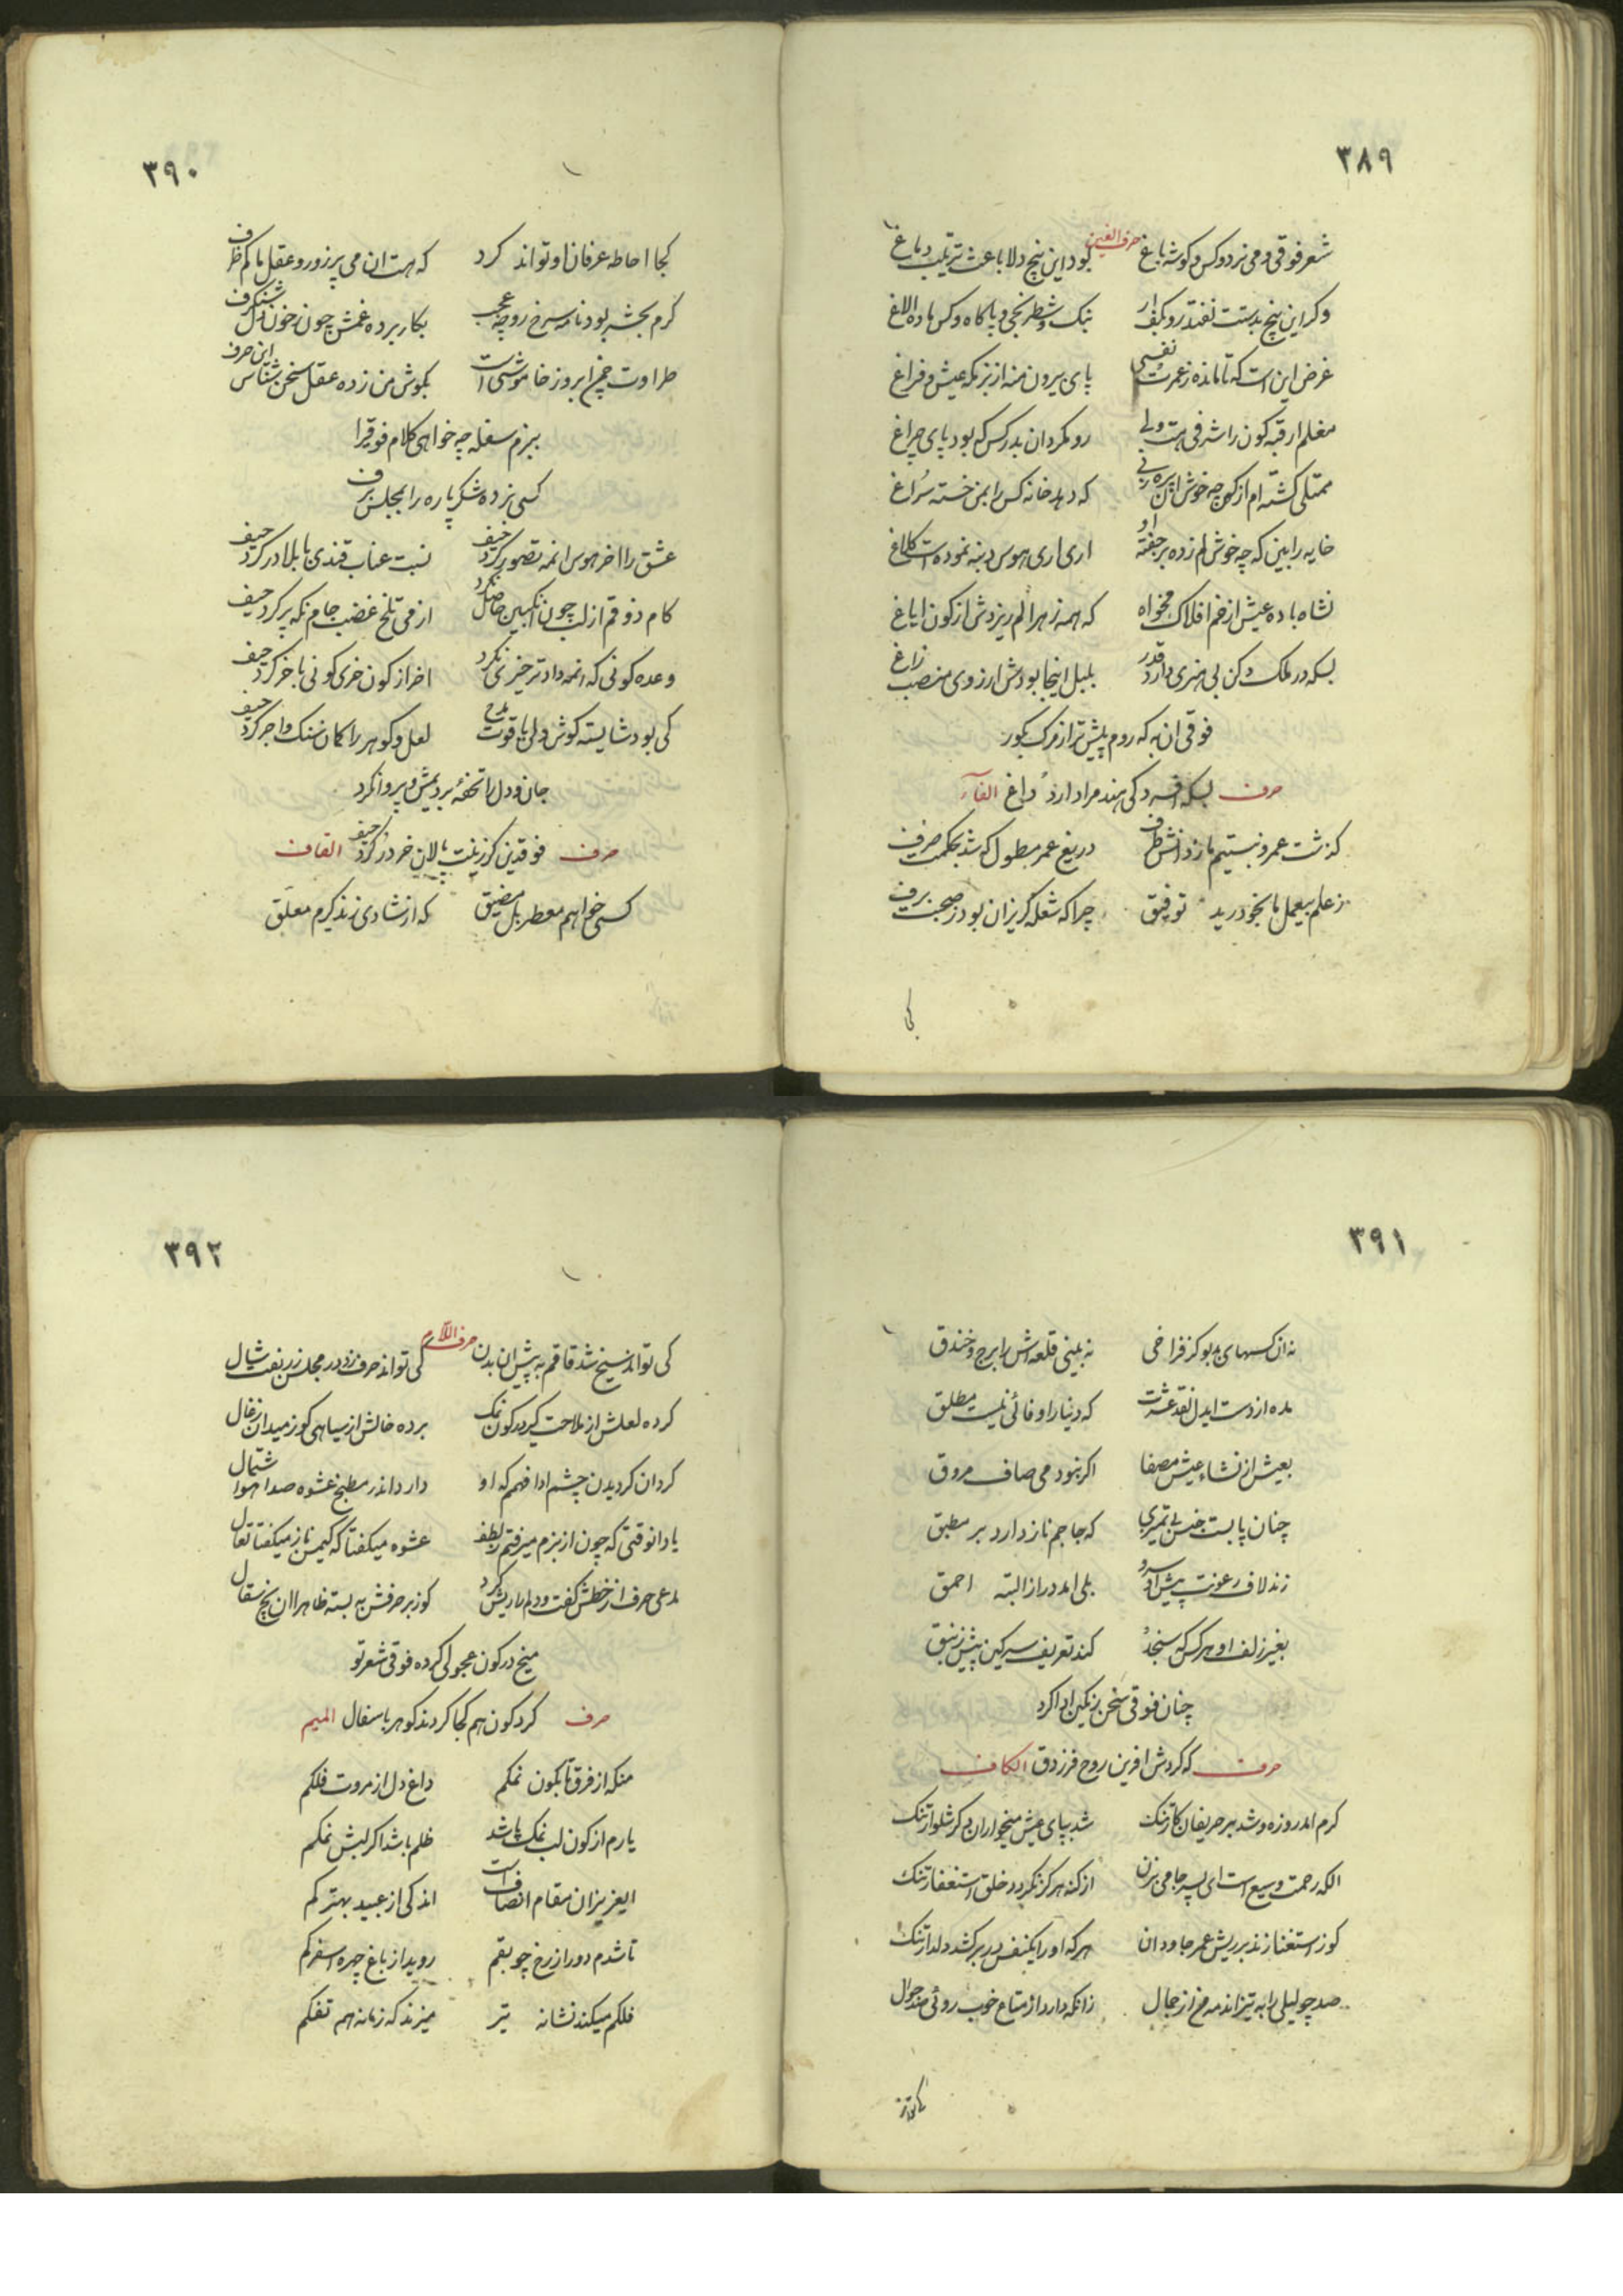 ۳۸۹
حرف الغین
شعر فوقی و می نرد و کس و گوشه باغ بود این پنج دلا باعث تریب دماغ
وکر این پنج بدستت نفتد رو بکف ار بنک و شطرنجی و پاکاه و کس ماده الاغ
غرض این است که تا مانده ز عمرت نفسی پای بیرون منه از بزمکه عیش و فراغ
مغلم ار قبه کون را شرفی هست ولی رو مکردان بدر کس که بود پای چراغ
ممتلی کشته ام از کون چه خوش که دهد خانه کس را بمن خسته سراغ
خایه را بین که چه خوش لم زده بر جفته او اری اری هوس دنبه نموده است کلاغ
نشاه باده عیش از خم افلاک مخواه که همه زهر الم ریزدش از کون ایاغ
بسکه در ملک دکن بی هنری دارد قدر بلبل اینجا بودش ارزوی منصب زاغ
فوقی ان به که روم پیشتر از مرک بکور
حرف بسکه افسردکی هند مرا دارد داغ الفآء
کذشت عمر و نبستیم ما ز دانش طرف دریغ عمر مطول که شد بحکمت صرف
ز علم بیعمل ما بخود رمید توفیق چرا که شعله کریزان بود ز صحبت برف
۳۹۰
کجا احاطه عرفان او تواند کرد که هست ان می پرزور و عقل ما کم ظرف
کرم بحشر بود نامه سرخ رو چه عجب بکار برده غمش چون ز خون دل شنکرف
طراوت چمن ابروز خاموشی است بکوش من زده عقل سخن شناس این حرف
ببزم سفله چه خواهی کلام فوقی را
کسی نزده شکر پاره را بمجلس برف
عشق را اخر هوس انمه تصور کرد حیف نسبت عناب قندی با بلادر کرد حیف
کام ذوقم از لب چون انکبین حاصل نکرد از می تلخ غضب جام نکه پر کرد حیف
وعده کونی که انمه داد تر خیزی نکرد اخر از کون خری کونی با خر کرد حیف
کی بود شایسته کوش ولی یاقوت مدح لعل و کوهر را کمان سنک و اجر کرد حیف
جان و دل را تحفه بردیمش و پروا نکرد
حرف فوقدین کز زینت پالان خر در کرد حیف القاف
کسی خواهم معطر بل مضیق که از شادی زند کیرم معلق
۳۹۱
نه ان کسهای بدبو کز فراخی نه بینی قلعه اش را برج و خندق
مده از دست ایدل نقد عشرت که دنیا را وفائی نیست مطلق
بعیش از نشاء عیش مصفا اکر نبود می صاف مروق
چنان پابست جنس بی تمیزی که جاجم ناز دارد بر مطبق
زند لاف رعونت پیش او سرو بلی امد دراز البته احمق
بغیر زلف او هر کس که سنجد کند تعریف سرکین پیش زنبق
چنان فوقی سخن رنکین ادا کرد
حرف که کردش افرین روح فرزدق الکاف
کرم امد روزه و شد بر حریفان کار تنک شد بپای عیش میخواران دکر شلوار تنک
الکه رحمت وسیع است ای پسر جامی بزن از کنه هرکز نکردد خلق استغفار تنک
کوز استغنا زند بر ریش عمر جاودان هر که او را یکنفس در بر کشد دلدار تنک
صد چو لیلی را به تیز اند مه من از جمال زانکه دارد از متاع خوب روئی صد جوال
کی تواند
۳۹۲
حرف اللام
کی تواند سیخ شد قاقم به پیش ان بدن کی تواند حرف زد در مجلس زربفت شال
کرده لعلش از ملاحت کیر در کون نمک برده خالش از سیاهی کوز میدان زغال
کردان کردیدن چشم ادا فهمم که او دارد اندر مطبخ عشوه صد اهوا شتمال
یاد انوقتی که چون از بزم میرفتم ز لطف عشوه میکفتا که کیمن ناز میکفتا تعال
مدعی حرف از خطش کفت و دلم را ریش کرد کوز بر حرفش به بسته ظاهرا ان بچ سقال
میخ در کون عجولی کرده فوقی شعر تو
حرف کرد کون هم کجا کردند کوهر با سفال المیم
منکه از فرق تا بکون نمکم داغ دل از مروت فلکم
یارم از کون لب نمک پاشد ظلم باشد اکر لبش نمکم
ایعزیزان مقام انصاف است اندکی از عبید بهتر کم
تا شدم دور از رخ چو بقم روید از باغ چهره اسفرکم
فلکم میکند نشانه تیر میزند که زمانه هم تفکم